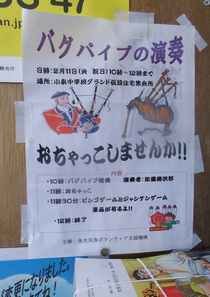 バグパイプの演奏
日時：2月11日(火 祝日)10時～12時まで
場所：山島中学校グランド仮設住宅集会所
おちゃっこしませんか!!
内容
・10時：バグパイプ演奏 演奏者：加藤健次郎
・11時：おちゃっこ
・11時30分：ビンゴゲームとジャンケンゲーム
景品が有るよ!!
・12時：終了
変更になりました。